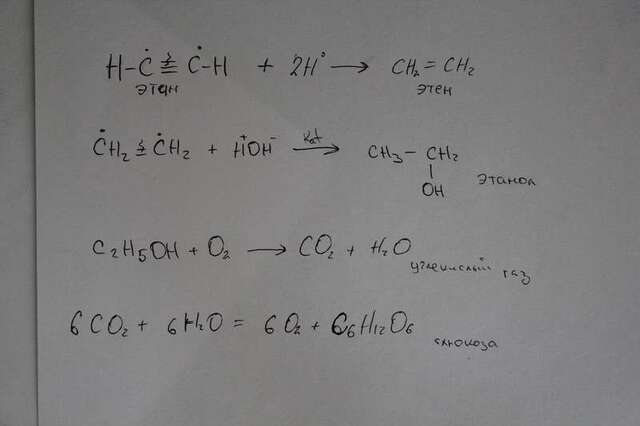 H-Ċ≡Ċ-H + 2H° → CH₂=CH₂
этан этен
ĊH₂=ĊH₂ + H⁺OH⁻ →kat CH₃-CH₂
|
OH этанол
C₂H₅OH + O₂ → CO₂ + H₂O
углекислый газ
6CO₂ + 6H₂O = 6O₂ + C₆H₁₂O₆
глюкоза